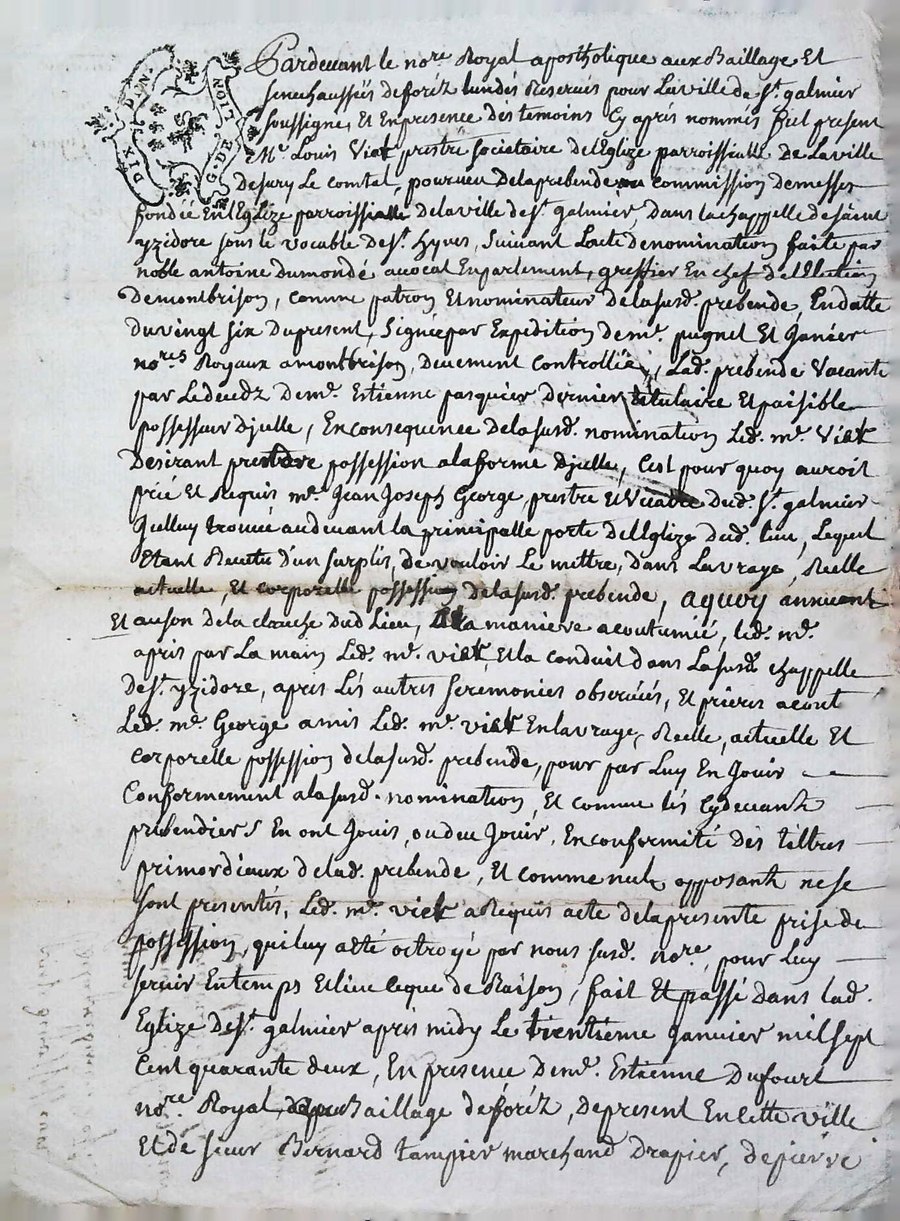 DIX DEN
G.DE LION
Pardevant le no.re Royal apostholique aux Baillage Et
senechaussés de foréz lundés Reservés pour La ville de St. galmier
soussigné, Et En presence des temoins Cy aprés nommés fut present
Mr. Louis Viet, prestre societaire de l'Eglize parroissialle De La ville
De sury Le comtal, pourveu de la prebende ou commission de messes
fondéé En l'Eglize parroissialle de la ville de St. galmier, Dans la chappelle de saint
yzidore sous le vocable de St. hyves, suivant L'acte de nomination faite par
noble antoine dumondé avocat En parlement, greffier En chef d'el'Election
De montbrison, comme patron Et nominateur de la susd. prebende, En datte
du vingt six du present, signée par Expedition de mes. pugnet Et Janier
no.res Royaux a montbrison, Deuement Controllée, Lad. prebende Vacante
par Le decedz de mr. Estienne pasquier dernier titulaire Et paisible
possesseur d'jcelle, En consequence de la susd. nomination Led. mr. Viet
Desirant prendre possession a la forme d'jcelle, C'est pour quoy auroit
prié Et Requis mr. Jean Joseph George, prestre Et Vicaire Dud. St. galmier
Jcelluy trouvé au devant la principalle porte de l'Eglize dud. lieu, Lequel
Etant Revetu d'un surplis, de vouloir Le mettre, dans La vraye, Reelle
actuelle, Et corporelle possession de la susd. prebende, aquoy annuant
Et au son de la clauche dud Lieu, a la maniere acoutumée, led. mr.
a pris par La main Led. mr. viet, Et la conduit dans La susd. chappelle
De St. yzidore, aprés Lés autres seremonies observéés, Et prieres acout
Led. mr. George a mis Led. mr. viet En la vraye, Reelle, actuelle Et
Corporelle possession de la susd. prebende, pour par Luy En Jouir
Conformement a la susd. nomination, Et comme lés Cydevants
prebendiers En ont Jouis, ou deu Jouir, En conformité dés tiltres
primordiaux de lad. prebende, Et comme nuls opposants ne se
sont presentés, Led. mr. viet a Requis acte de la presente prise de
possession, qui luy a eté octroyé par nous susd. no.re, pour Luy
servir En temps Et lieu ce que de Raison, fait Et passé dans lad.
Eglize de St. galmier aprés midy Le trentieme janvier mil sept
Cent quarante deux, En presence de mr. Estienne Dufourt
no.re Royal au Baillage de foréz, De present En cette ville
Et de sieur Bernard tampier marchand drapier, de pierre